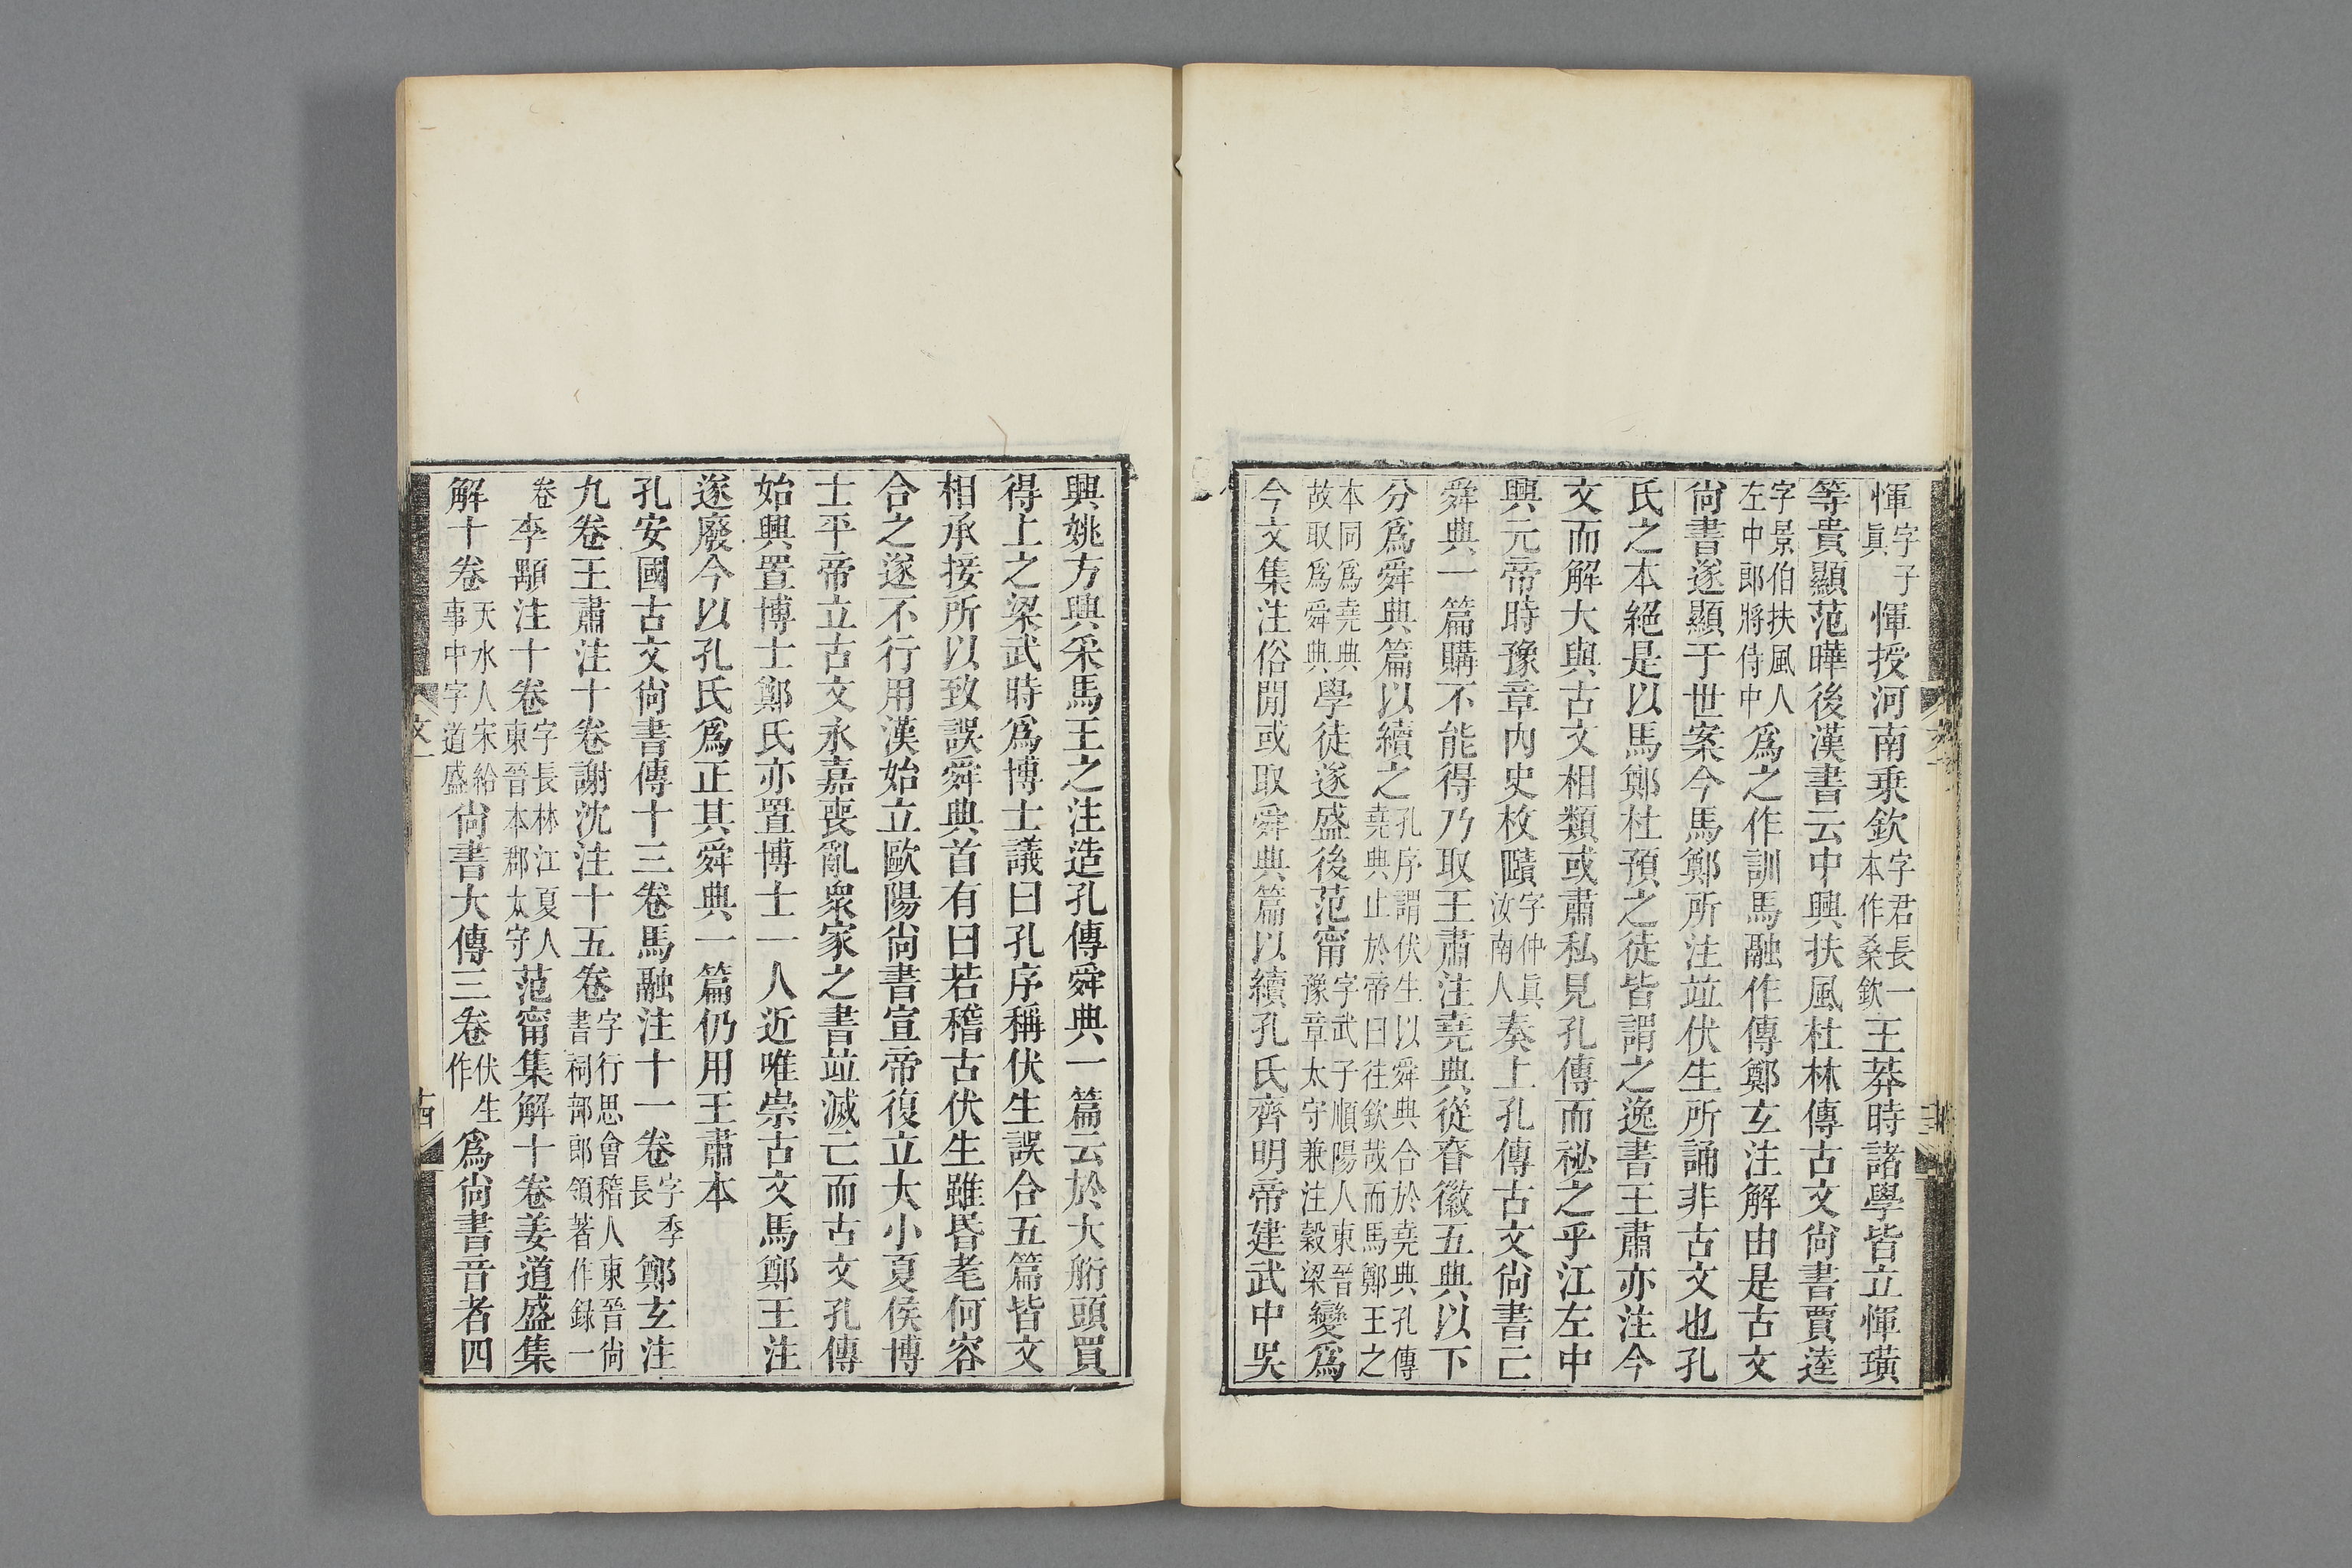 惲字子眞惲授河南乗欽字君長一本作桑欽王莽時諸學皆立惲璜
等貴顯范曄後漢書云中興扶風杜林傳古文尙書賈逵
字景伯扶風人左中郎將侍中爲之作訓馬融作傳鄭玄注解由是古文
尙書遂顯于世案今馬鄭所注竝伏生所誦非古文也孔
氏之本絕是以馬鄭杜預之徒皆謂之逸書王肅亦注今
文而解大與古文相類或肅私見孔傳而祕之乎江左中
興元帝時豫章內史枚賾字仲眞汝南人奏上孔傳古文尙書亡
舜典一篇購不能得乃取王肅注堯典從昚徽五典以下
分爲舜典篇以續之孔序謂伏生以舜典合於堯典孔傳堯典止於帝曰往欽哉而馬鄭王之
本同爲堯典故取爲舜典學徒遂盛後范甯字武子順陽人東晉豫章太守兼注穀梁變爲
今文集注俗閒或取舜典篇以續孔氏齊明帝建武中吳
興姚方興采馬王之注造孔傳舜典一篇云於大𦨵頭買
得上之梁武時爲博士議曰孔序稱伏生誤合五篇皆文
相承接所以致誤舜典首有曰若稽古伏生雖昬耄何容
合之遂不行用漢始立歐陽尙書宣帝復立大小夏侯博
士平帝立古文永嘉喪亂衆家之書竝滅亡而古文孔傳
始興置博士鄭氏亦置博士一人近唯崇古文馬鄭王注
遂廢今以孔氏爲正其舜典一篇仍用王肅本
孔安國古文尙書傳十三卷馬融注十一卷字季長鄭玄注
九卷王肅注十卷謝沈注十五卷字行思會稽人東晉尙書祠部郎領著作録一
卷李顒注十卷字長林江夏人東晉本郡太守范甯集解十卷姜道盛集
解十卷天水人宋給事中字道盛尙書大傳三卷伏生作爲尙書音者四
文一
十四